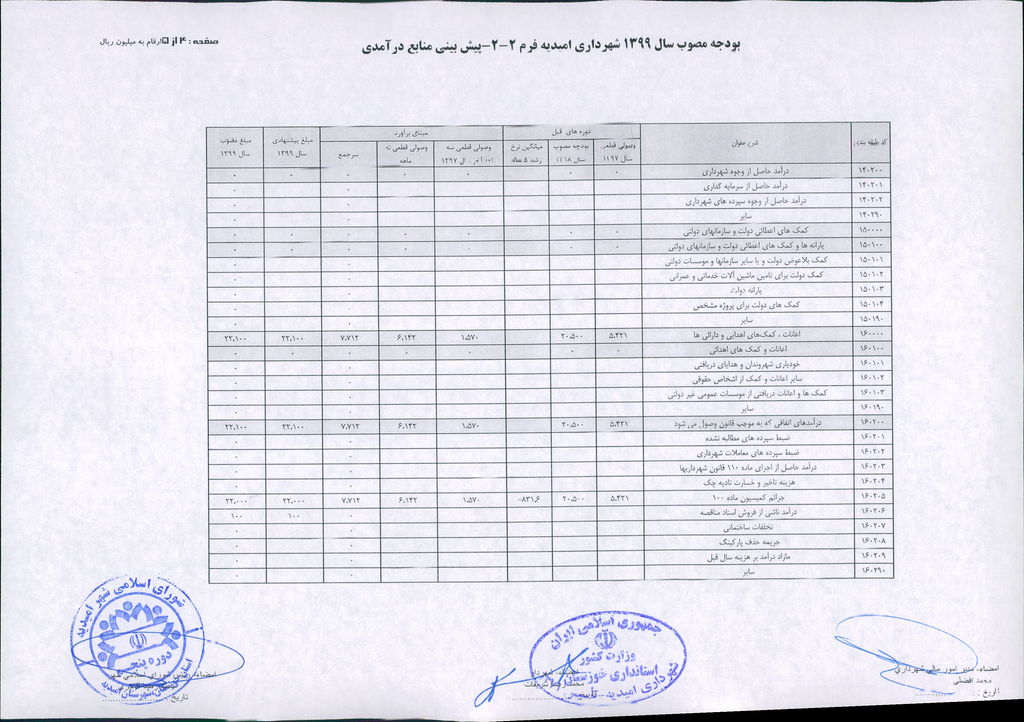 بودجه مصوب سال ۱۳۹۹ شهرداری امیدیه فرم ۲-۲-پیش بینی منابع درآمدی
صفحه : ۴ از ۵ ارقام به میلیون ریال
کد طبقه بندی شرح عنوان دوره های قبل مبنای برآورد مبلغ پیشنهادی سال ۱۳۹۹ مبلغ مصوب سال ۱۳۹۹
وصولی قطعی سال ۱۳۹۷ بودجه مصوب سال ۱۳۹۸ میانگین نرخ رشد ۵ ساله وصولی قطعی سه سال ۱۳۹۷ وصولی قطعی نه ماهه سرجمع
۱۴۰۲۰۰ درآمد حاصل از وجوه شهرداری ۰ ۰ ۰ ۰ ۰ ۰ ۰
۱۴۰۲۰۱ درآمد حاصل از سرمایه گذاری ۰ ۰
۱۴۰۲۰۲ درآمد حاصل از وجوه سپرده های شهرداری ۰ ۰
۱۴۰۲۹۰ سایر ۰ ۰
۱۵۰۰۰۰ کمک های اعطائی دولت و سازمانهای دولتی ۰ ۰ ۰ ۰ ۰ ۰ ۰
۱۵۰۱۰۰ یارانه ها و کمک های اعطائی دولت و سازمانهای دولتی ۰ ۰ ۰ ۰ ۰ ۰ ۰
۱۵۰۱۰۱ کمک بلاعوض دولت و یا سایر سازمانها و موسسات دولتی ۰ ۰
۱۵۰۱۰۲ کمک دولت برای تامین ماشین آلات خدماتی و عمرانی ۰ ۰
۱۵۰۱۰۳ یارانه دولت ۰ ۰
۱۵۰۱۰۴ کمک های دولت برای پروژه مشخص ۰ ۰
۱۵۰۱۹۰ سایر ۰ ۰
۱۶۰۰۰۰ اعانات ، کمک‌های اهدایی و دارائی ها ۵،۴۲۱ ۲۰،۵۰۰ ۱،۵۷۰ ۶،۱۴۲ ۷،۷۱۲ ۲۲،۱۰۰ ۲۲،۱۰۰
۱۶۰۱۰۰ اعانات و کمک های اهدائی ۰ ۰ ۰ ۰ ۰ ۰ ۰
۱۶۰۱۰۱ خودیاری شهروندان و هدایای دریافتی ۰ ۰
۱۶۰۱۰۲ سایر اعانات و کمک از اشخاص حقوقی ۰ ۰
۱۶۰۱۰۳ کمک ها و اعانات دریافتی از موسسات عمومی غیر دولتی ۰ ۰
۱۶۰۱۹۰ سایر ۰ ۰
۱۶۰۲۰۰ درآمدهای اتفاقی که به موجب قانون وصول می شود ۵،۴۲۱ ۲۰،۵۰۰ ۱،۵۷۰ ۶،۱۴۲ ۷،۷۱۲ ۲۲،۱۰۰ ۲۲،۱۰۰
۱۶۰۲۰۱ ضبط سپرده های مطالبه نشده ۰ ۰
۱۶۰۲۰۲ ضبط سپرده های معاملات شهرداری ۰ ۰
۱۶۰۲۰۳ درآمد حاصل از اجرای ماده ۱۱۰ قانون شهرداریها ۰ ۰
۱۶۰۲۰۴ هزینه تاخیر و خسارت تادیه چک ۰ ۰
۱۶۰۲۰۵ جرائم کمیسیون ماده ۱۰۰ ۵،۴۲۱ ۲۰،۵۰۰ -۸۳۱،۶ ۱،۵۷۰ ۶،۱۴۲ ۷،۷۱۲ ۲۲،۰۰۰ ۲۲،۰۰۰
۱۶۰۲۰۶ درآمد ناشی از فروش اسناد مناقصه ۰ ۱۰۰ ۱۰۰
۱۶۰۲۰۷ تخلفات ساختمانی ۰ ۰
۱۶۰۲۰۸ جریمه حذف پارکینگ ۰ ۰
۱۶۰۲۰۹ مازاد درآمد بر هزینه سال قبل ۰ ۰
۱۶۰۲۹۰ سایر ۰ ۰
امضاء- مدیر امور مالی شهرداری
محمد افضلی
تاریخ :
جمهوری اسلامی ایران
وزارت کشور
استانداری خوزستان
شهرداری امیدیه
شورای اسلامی شهر امیدیه
دوره پنجم
امضاء- رئیس شورای اسلامی شهر
تاریخ :